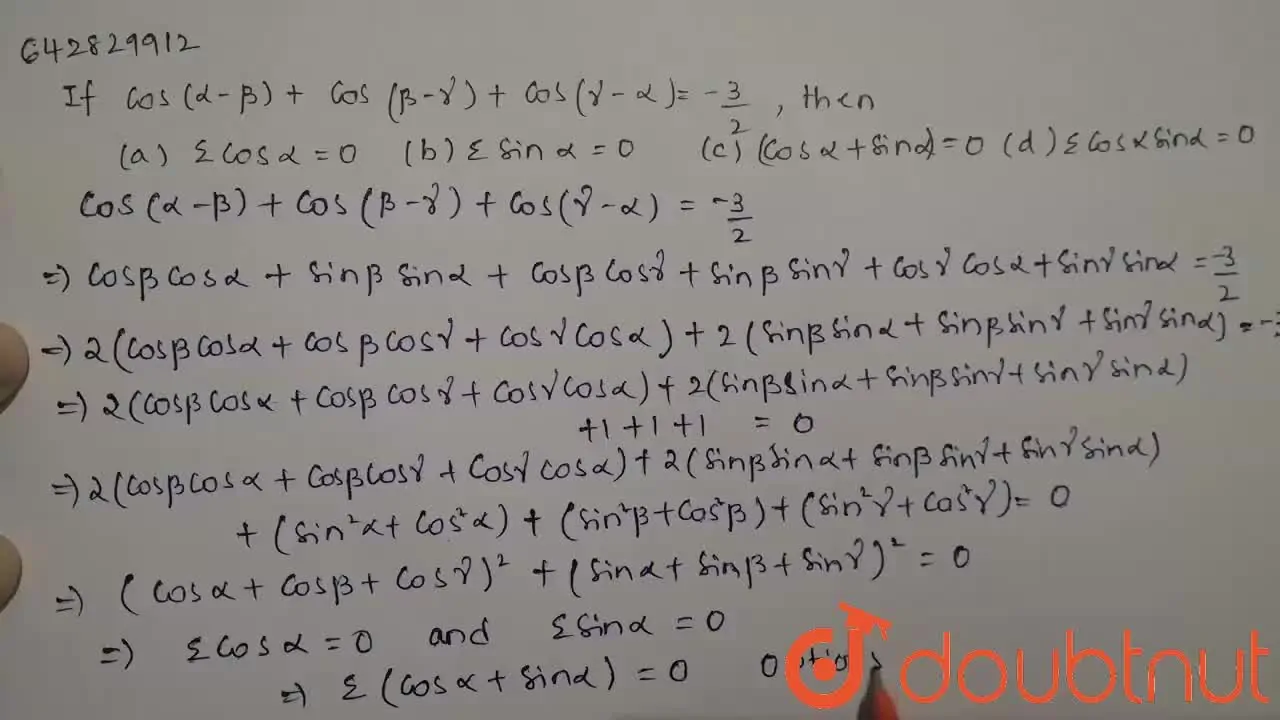 642829912
If cos(α-β) + cos(β-γ) + cos(γ-α) = -3/2, then
(a) Σcosα = 0 (b) Σ sinα = 0 (c) (cosα + sinα) = 0 (d) Σcosα sinα = 0
cos(α-β) + cos(β-γ) + cos(γ-α) = -3/2
=) cosβ cosα + sinβ sinα + cosβ cosγ + sinβ sinγ + cosγ cosα + sinγ sinα = -3/2
=) 2(cosβ cosα + cosβ cosγ + cosγ cosα) + 2(sinβ sinα + sinβ sinγ + sinγ sinα) = -3
=) 2(cosβ cosα + cosβ cosγ + cosγ cosα) + 2(sinβ sinα + sinβ sinγ + sinγ sinα)
+1 +1 +1 = 0
=) 2(cosβ cosα + cosβ cosγ + cosγ cosα) + 2(sinβ sinα + sinβ sinγ + sinγ sinα)
+ (sin²α + cos²α) + (sin²β + cos²β) + (sin²γ + cos²γ) = 0
=) (cosα + cosβ + cosγ)² + (sinα + sinβ + sinγ)² = 0
=) Σcosα = 0 and Σsinα = 0
=) Σ(cosα + sinα) = 0
doubtnut